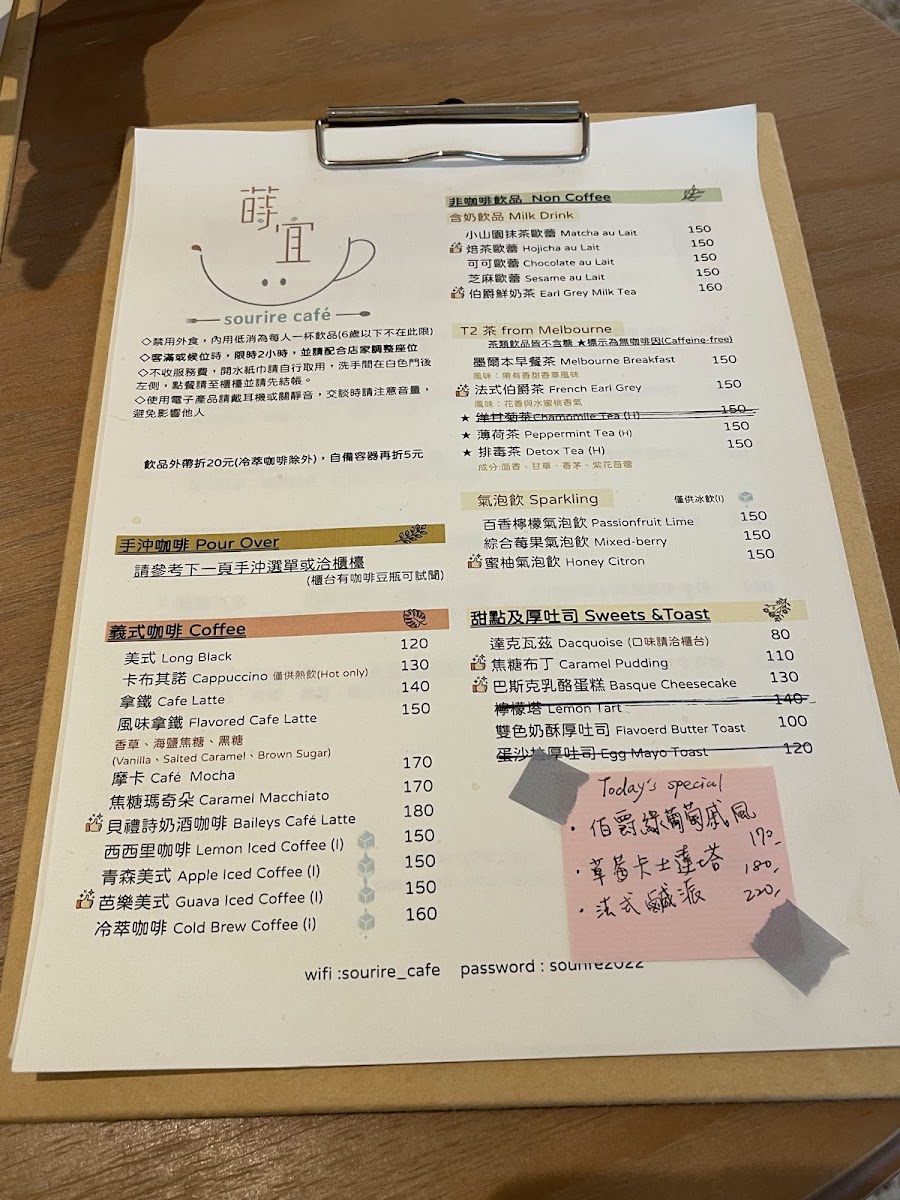 蒔宜
sourire café
◇禁用外食，內用低消為每人一杯飲品(6歲以下不在此限)
◇客滿或候位時，限時2小時，並請配合店家調整座位
◇不收服務費，開水紙巾請自行取用，洗手間在白色門後
左側，點餐請至櫃檯並請先結帳。
◇使用電子產品請戴耳機或關靜音，交談時請注意音量，
避免影響他人
飲品外帶折20元(冷萃咖啡除外)，自備容器再折5元
手沖咖啡 Pour Over
請參考下一頁手沖選單或洽櫃檯
(櫃台有咖啡豆瓶可試聞)
義式咖啡 Coffee
美式 Long Black 120
卡布其諾 Cappuccino 僅供熱飲(Hot only) 130
拿鐵 Cafe Latte 140
風味拿鐵 Flavored Cafe Latte 150
香草、海鹽焦糖、黑糖
(Vanilla、Salted Caramel、Brown Sugar)
摩卡 Café Mocha 170
焦糖瑪奇朵 Caramel Macchiato 170
貝禮詩奶酒咖啡 Baileys Café Latte 180
西西里咖啡 Lemon Iced Coffee (I) 150
青森美式 Apple Iced Coffee (I) 150
芭樂美式 Guava Iced Coffee (I) 150
冷萃咖啡 Cold Brew Coffee (i) 160
非咖啡飲品 Non Coffee
含奶飲品 Milk Drink
小山園抹茶歐蕾 Matcha au Lait 150
焙茶歐蕾 Hojicha au Lait 150
可可歐蕾 Chocolate au Lait 150
芝麻歐蕾 Sesame au Lait 150
伯爵鮮奶茶 Earl Grey Milk Tea 160
T2 茶 from Melbourne
茶類飲品皆不含糖 ★標示為無咖啡因(Caffeine-free)
墨爾本早餐茶 Melbourne Breakfast 150
風味：帶有香甜香草風味
法式伯爵茶 French Earl Grey 150
風味：花香與水蜜桃香氣
★ 洋甘菊茶Chamomile Tea (H) 150
★ 薄荷茶 Peppermint Tea (H) 150
★ 排毒茶 Detox Tea (H) 150
成分:茴香、甘草、香茅、紫花苜蓿
氣泡飲 Sparkling 僅供冰飲(I)
百香檸檬氣泡飲 Passionfruit Lime 150
綜合莓果氣泡飲 Mixed-berry 150
蜜柚氣泡飲 Honey Citron 150
甜點及厚吐司 Sweets &Toast
達克瓦茲 Dacquoise (口味請洽櫃台) 80
焦糖布丁 Caramel Pudding 110
巴斯克乳酪蛋糕 Basque Cheesecake 130
檸檬塔 Lemon Tart 140
雙色奶酥厚吐司 Flavoerd Butter Toast 100
蛋沙拉厚吐司 Egg Mayo Toast 120
Today's special
・伯爵綠葡萄戚風 170.-
・草莓卡士達塔 180.-
・法式鹹派 220.-
wifi :sourire_cafe password : sourire2022